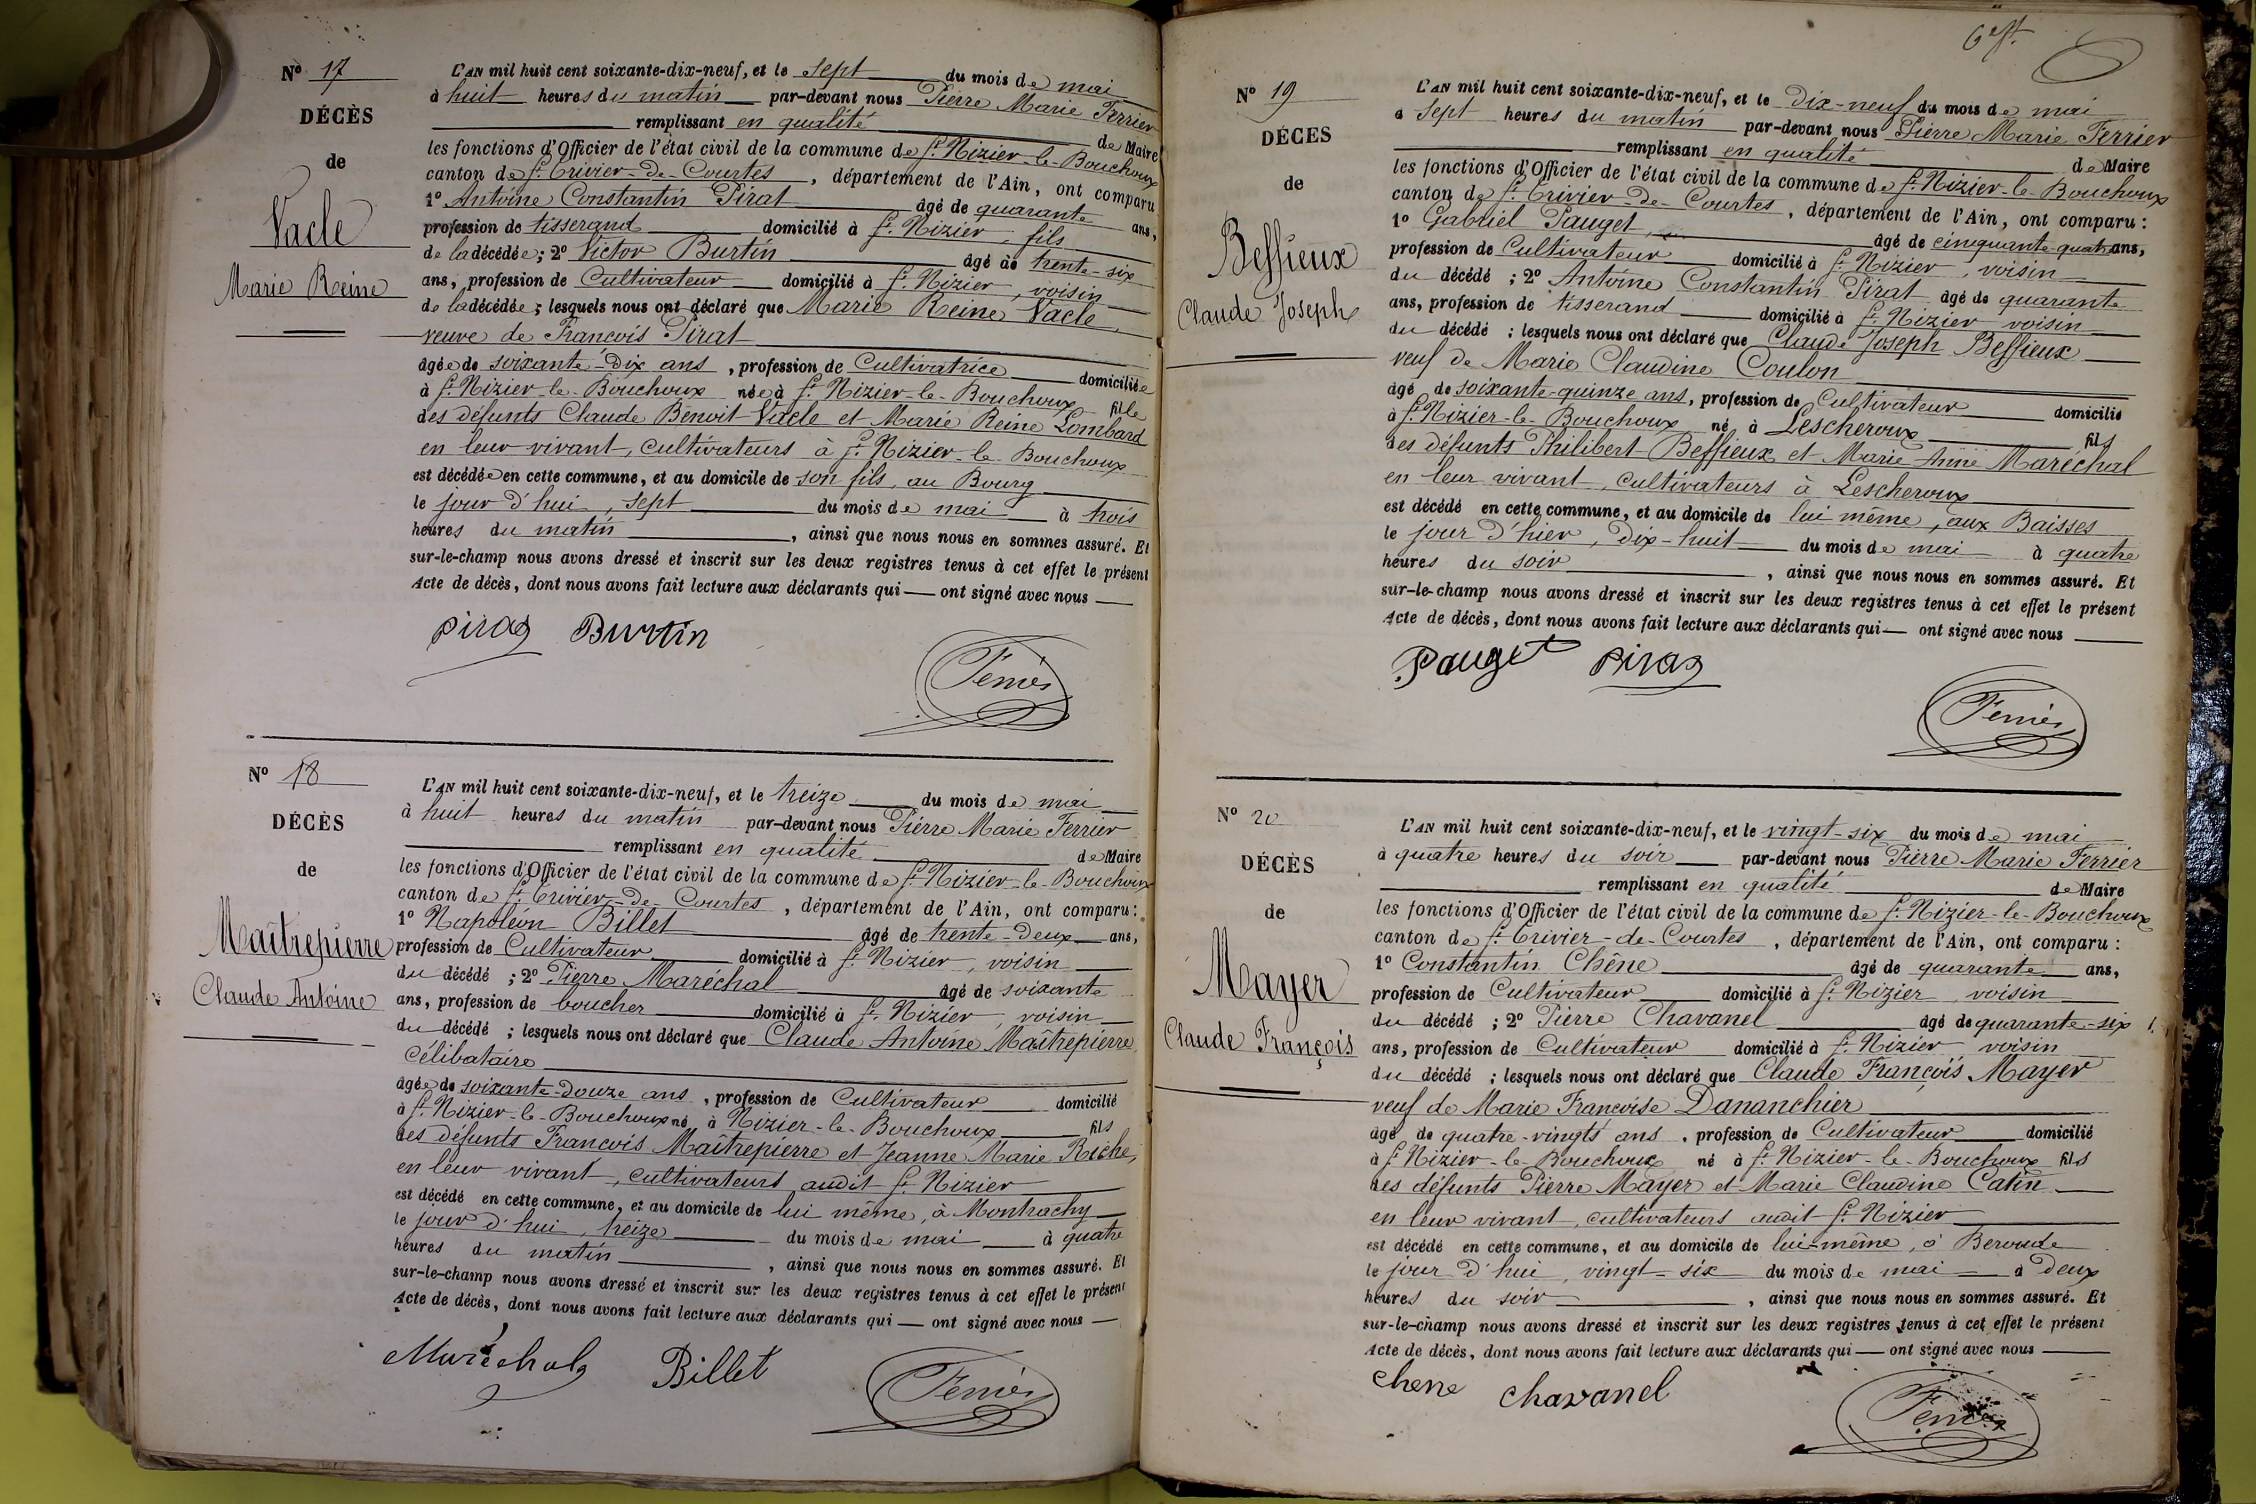 N° 17
DÉCÈS
de
Vacle
Marie Reine
L'AN mil huit cent soixante-dix-neuf, et le sept du mois de mai
à huit heures du matin par-devant nous Pierre Marie Ferrier
remplissant en qualité de Maire
les fonctions d'Officier de l'état civil de la commune de St Nizier-le-Bouchoux
canton de St Trivier-de-Courtes, département de l'Ain, ont comparu
1° Antoine Constantin Pirat âgé de quarante ans,
profession de tisserand domicilié à St Nizier, fils
de la décédée; 2° Victor Burtin âgé de trente-six
ans, profession de Cultivateur domicilié à St Nizier, voisin
de la décédée; lesquels nous ont déclaré que Marie Reine Vacle,
veuve de Francois Pirat
âgée de soixante-Dix ans, profession de Cultivatrice domiciliée
à St Nizier-le-Bouchoux née à St Nizier-le-Bouchoux fille
des défunts Claude Benoit Vacle et Marie Reine Lombard
en leur vivant, cultivateurs à St Nizier-le-Bouchoux
est décédée en cette commune, et au domicile de son fils, au Bourg
le jour d'hui, sept du mois de mai à trois
heures du matin, ainsi que nous nous en sommes assuré. Et
sur-le-champ nous avons dressé et inscrit sur les deux registres tenus à cet effet le présent
Acte de décès, dont nous avons fait lecture aux déclarants qui — ont signé avec nous —
Pirat Burtin
Ferrier
N° 18
DÉCÈS
de
Maîtrepierre
Claude Antoine
L'AN mil huit cent soixante-dix-neuf, et le treize du mois de mai
à huit heures du matin par-devant nous Pierre Marie Ferrier
remplissant en qualité de Maire
les fonctions d'Officier de l'état civil de la commune de St Nizier-le-Bouchoux
canton de St Trivier-de-Courtes, département de l'Ain, ont comparu:
1° Napoléon Billet âgé de trente-Deux ans,
profession de Cultivateur domicilié à St Nizier, voisin
du décédé; 2° Pierre Maréchal âgé de soixante
ans, profession de boucher domicilié à St Nizier, voisin
du décédé; lesquels nous ont déclaré que Claude Antoine Maîtrepierre,
célibataire
âgée de soixante-Douze ans, profession de Cultivateur domicilié
à St Nizier-le-Bouchoux né à Nizier-le-Bouchoux fils
des défunts Francois Maîtrepierre et Jeanne Marie Riche,
en leur vivant, cultivateurs audit St Nizier
est décédé en cette commune, et au domicile de lui même, à Montrachy
le jour d'hui, treize du mois de mai à quatre
heures du matin, ainsi que nous nous en sommes assuré. Et
sur-le-champ nous avons dressé et inscrit sur les deux registres tenus à cet effet le présent
Acte de décès, dont nous avons fait lecture aux déclarants qui — ont signé avec nous —
Maréchal Billet
Ferrier
N° 19
DÉCES
de
Beffieux
Claude Joseph
L'AN mil huit cent soixante-dix-neuf, et le Dix-neuf du mois de mai
à sept heures du matin par-devant nous Pierre Marie Ferrier
remplissant en qualité de Maire
les fonctions d'Officier de l'état civil de la commune de St Nizier-le-Bouchoux
canton de St Trivier-de-Courtes, département de l'Ain, ont comparu:
1° Gabriel Pauget, âgé de cinquante-quatre ans,
profession de Cultivateur domicilié à St Nizier, voisin
du décédé; 2° Antoine Constantin Pirat âgé de quarante
ans, profession de tisserand domicilié à St Nizier voisin
du décédé; lesquels nous ont déclaré que Claude Joseph Beffieux
veuf de Marie Claudine Coulon
âgé de soixante-quinze ans, profession de Cultivateur domicilié
à St Nizier-le-Bouchoux né à Lescheroux fils
des défunts Philibert Beffieux et Marie Anne Maréchal
en leur vivant, cultivateurs à Lescheroux
est décédé en cette commune, et au domicile de lui même, aux Baisses
le jour d'hier, Dix-huit du mois de mai à quatre
heures du soir, ainsi que nous nous en sommes assuré. Et
sur-le-champ nous avons dressé et inscrit sur les deux registres tenus à cet effet le présent
Acte de décès, dont nous avons fait lecture aux déclarants qui — ont signé avec nous
Pauget Pirat
Ferrier
N° 20
DÉCÈS
de
Mayer
Claude François
L'AN mil huit cent soixante-dix-neuf, et le vingt-six du mois de mai
à quatre heures du soir par-devant nous Pierre Marie Ferrier
remplissant en qualité de Maire
les fonctions d'Officier de l'état civil de la commune de St Nizier-le-Bouchoux
canton de St Trivier-de-Courtes, département de l'Ain, ont comparu:
1° Constantin Chêne âgé de quarante ans,
profession de Cultivateur domicilié à St Nizier voisin
du décédé; 2° Pierre Chavanel âgé de quarante-six
ans, profession de Cultivateur domicilié à St Nizier voisin
du décédé; lesquels nous ont déclaré que Claude François Mayer
veuf de Marie Francoise Dananchier
âgé de quatre-vingts ans, profession de Cultivateur domicilié
à St Nizier-le-Bouchoux né à St Nizier-le-Bouchoux fils
des défunts Pierre Mayer et Marie Claudine Catin
en leur vivant, cultivateurs audit St Nizier
est décédé en cette commune, et au domicile de lui-même, à Beroude
le jour d'hui, vingt-six du mois de mai à Deux
heures du soir, ainsi que nous nous en sommes assuré. Et
sur-le-champ nous avons dressé et inscrit sur les deux registres tenus à cet effet le présent
Acte de décès, dont nous avons fait lecture aux déclarants qui — ont signé avec nous
Chene Chavanel
Ferrier